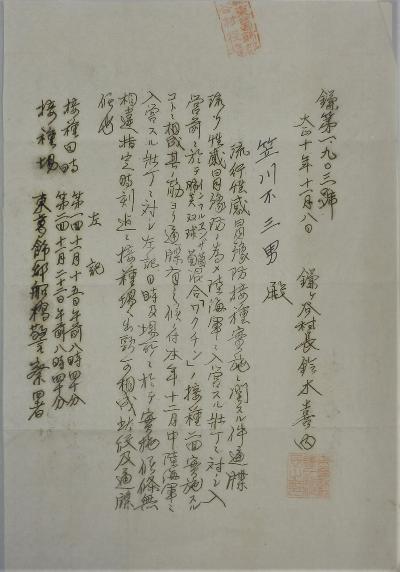 鎌第一九〇三號
大正十年十一月八日
鎌ヶ谷村長鈴木喜内
笠川不三男殿
流行性感冒豫防接種實施ニ関スル件通牒
流行性感冒豫防ノ為メ陸海軍ニ入営スル壮丁ニ対シ入
営前ニ於テ「インフルエンザ」菌肺炎双球菌混合「ワクチン」ノ接種二回実施スル
コトニ相成其ノ筋ヨリ通牒有之候ニ付本年十二月中陸海軍ニ
入営スル壮丁ニ対シ左記日時及場所ニ於テ実施候條無
相違指定時刻迄ニ接種場ニ出頭可相成此段及通牒
候也
左記
接種日時
第一回十一月十五日午前八時四十分
第二回十一月二十二日午前八時四十分
接種場
東葛飾郡船橋警察署